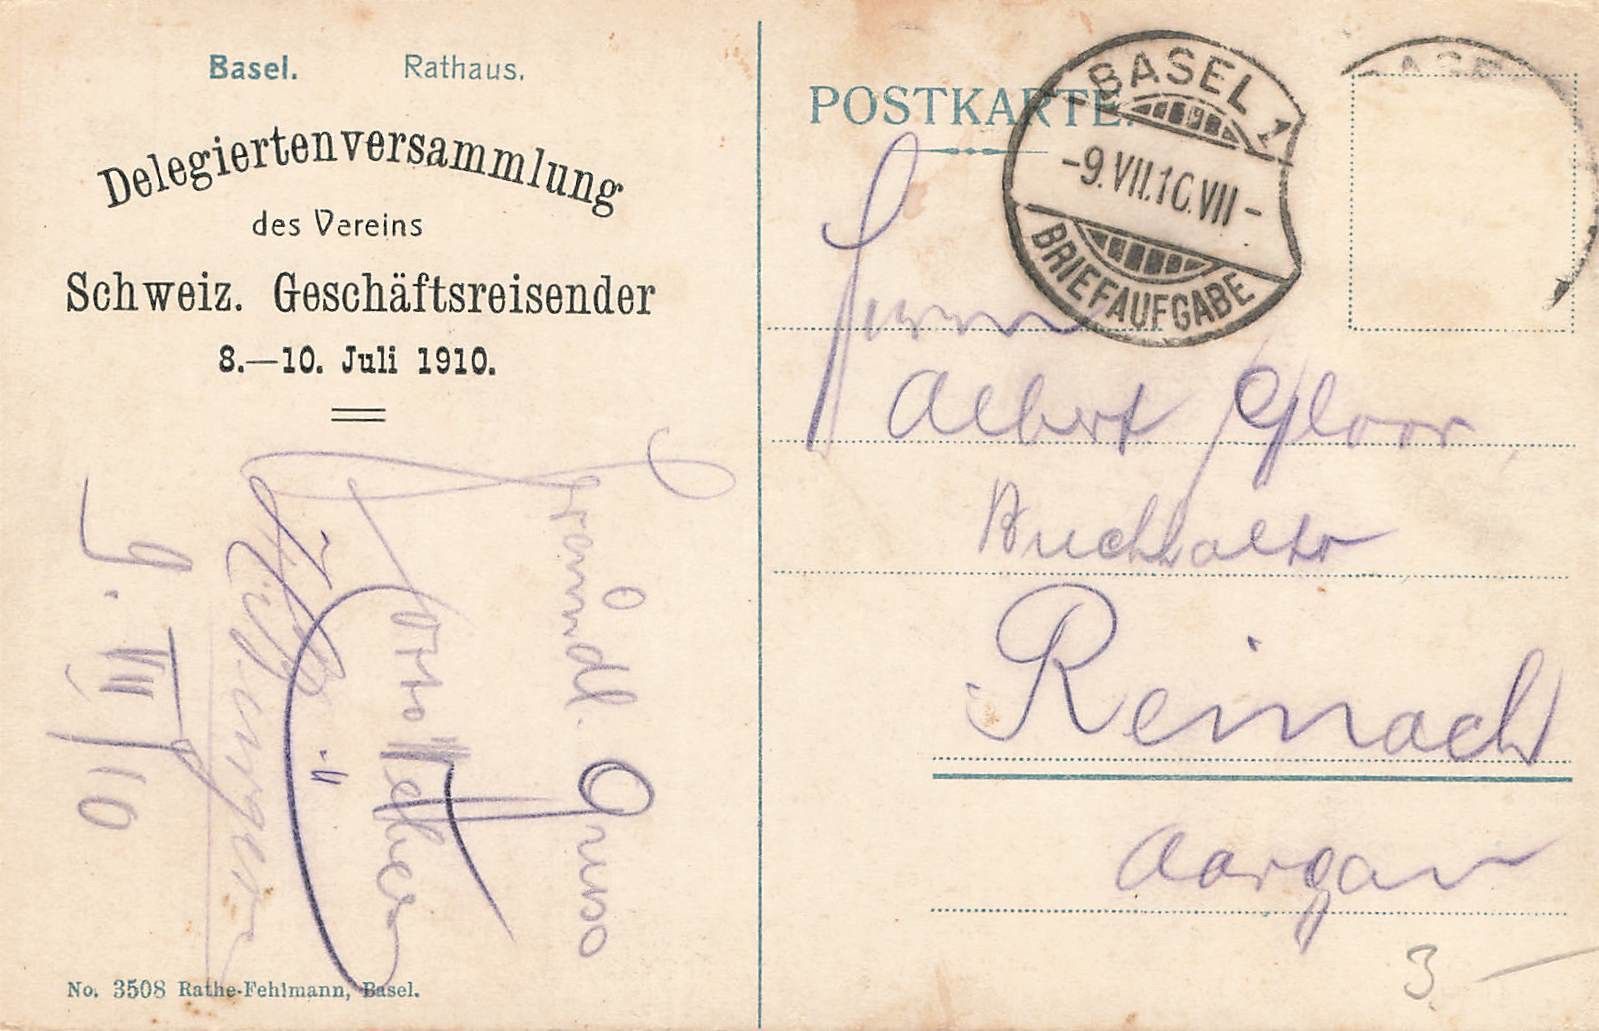 Basel. Rathaus.
Delegiertenversammlung
des Vereins
Schweiz. Geschäftsreisender
8.—10. Juli 1910.
9. VII 10
Freundl. Gruss
Otto
No. 3508 Rathe-Fehlmann, Basel.
POSTKARTE.
BASEL 1
-9.VII.10.VII-
BRIEFAUFGABE
BASEL
Herrn
Albert Gloor
Buchhalter
Reinach
Aargau
3.—